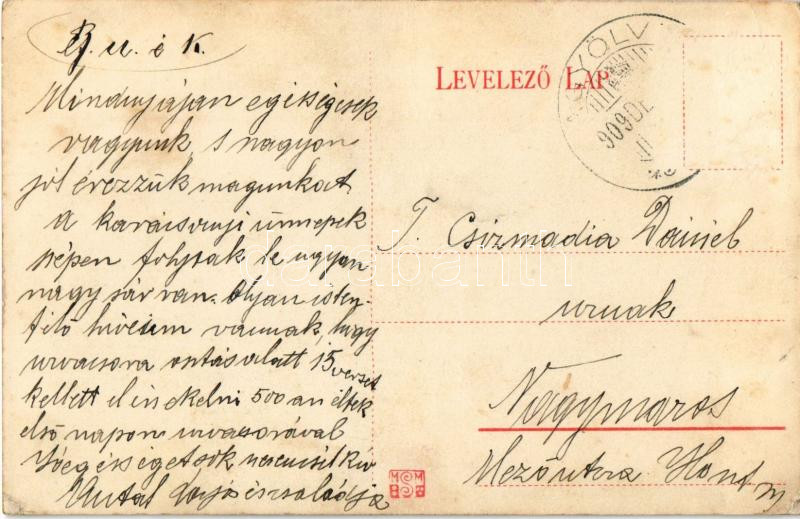 B. u. é k.
Mindnyájan egésségesek
vagyunk, s nagyon
jól érezzük magunkat
a karácsonyi ünnepek
szépen folytak le ugyan
nagy sár van. Olyan isten-
félő híveim vannak, hogy
urvacsora osztás alatt 15 verset
kellett elénekelni 500 an éltek
első napon urvacsorával
Jó egésséget sok szerencsét kíván
Antal Lajos és családja
LEVELEZŐ LAP
909 DE
T. Csizmadia Dániel
urnak
Nagymaros
Mezőutca Hont m